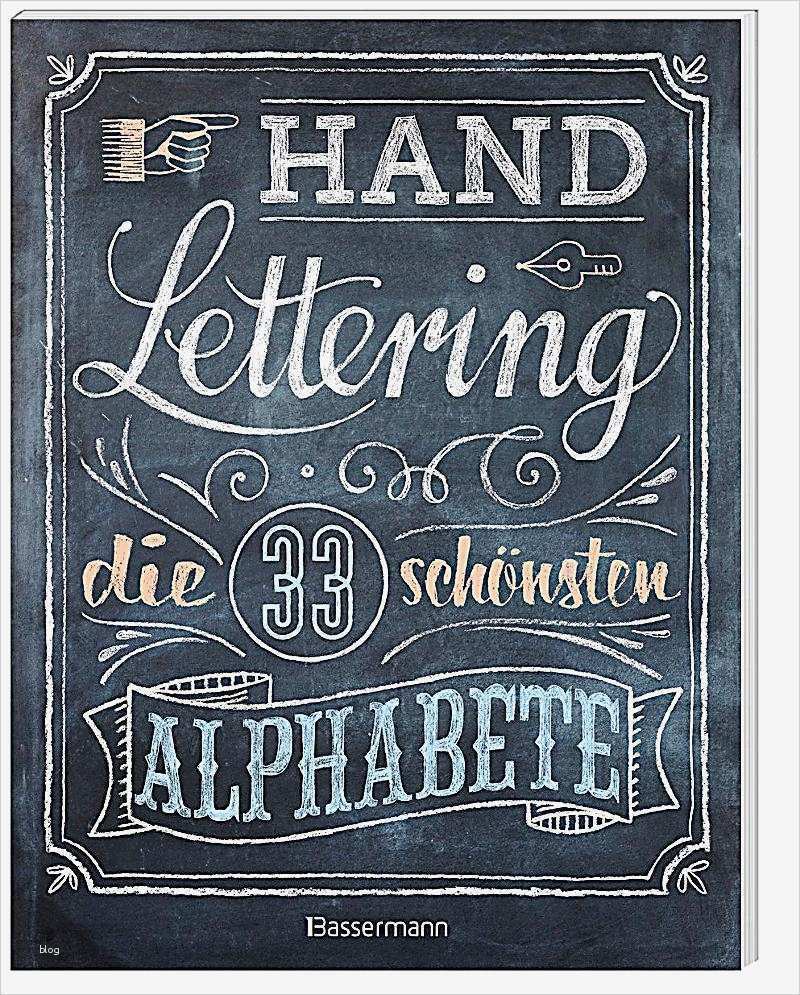 HAND
Lettering
die 33 schönsten
ALPHABETE
Bassermann
blog